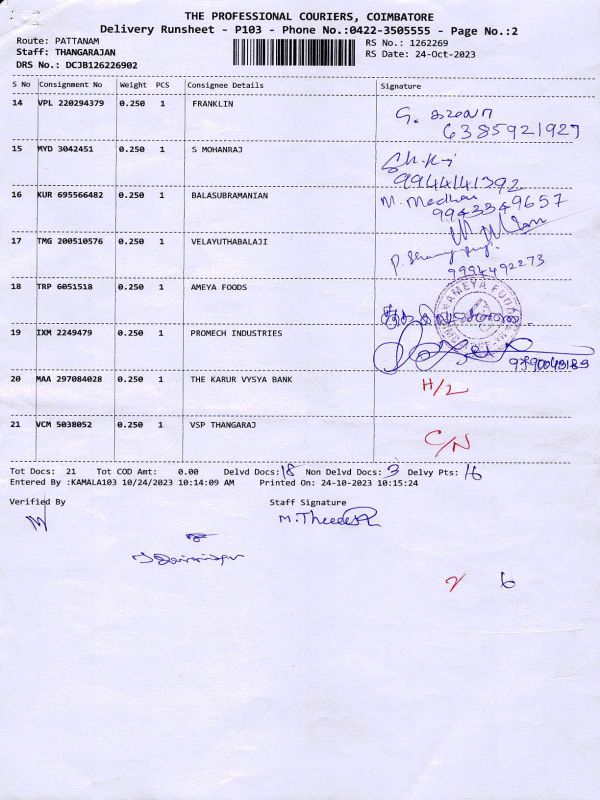 THE PROFESSIONAL COURIERS, COIMBATORE
Delivery Runsheet - P103 - Phone No.:0422-3505555 - Page No.:2
Route: PATTANAM
RS No.: 1262269
Staff: THANGARAJAN
RS Date: 24-Oct-2023
DRS No.: DCJB126226902
S No Consignment No Weight PCS Consignee Details Signature
14 VPL 220294379 0.250 1 FRANKLIN
G.
6385921927
15 MYD 3042451 0.250 1 S MOHANRAJ
9944141392
16 KUR 695566482 0.250 1 BALASUBRAMANIAN
M. Madhav
9943349657
17 TMG 200510576 0.250 1 VELAYUTHABALAJI
9994492273
18 TRP 6051518 0.250 1 AMEYA FOODS
AMEYA FOODS
19 IXM 2249479 0.250 1 PROMECH INDUSTRIES
20 MAA 297084028 0.250 1 THE KARUR VYSYA BANK H/2
21 VCM 5038052 0.250 1 VSP THANGARAJ C/N
Tot Docs: 21 Tot COD Amt: 0.00 Delvd Docs: 18 Non Delvd Docs: 3 Delvy Pts: 16
Entered By :KAMALA103 10/24/2023 10:14:09 AM Printed On: 24-10-2023 10:15:24
Verified By Staff Signature
6